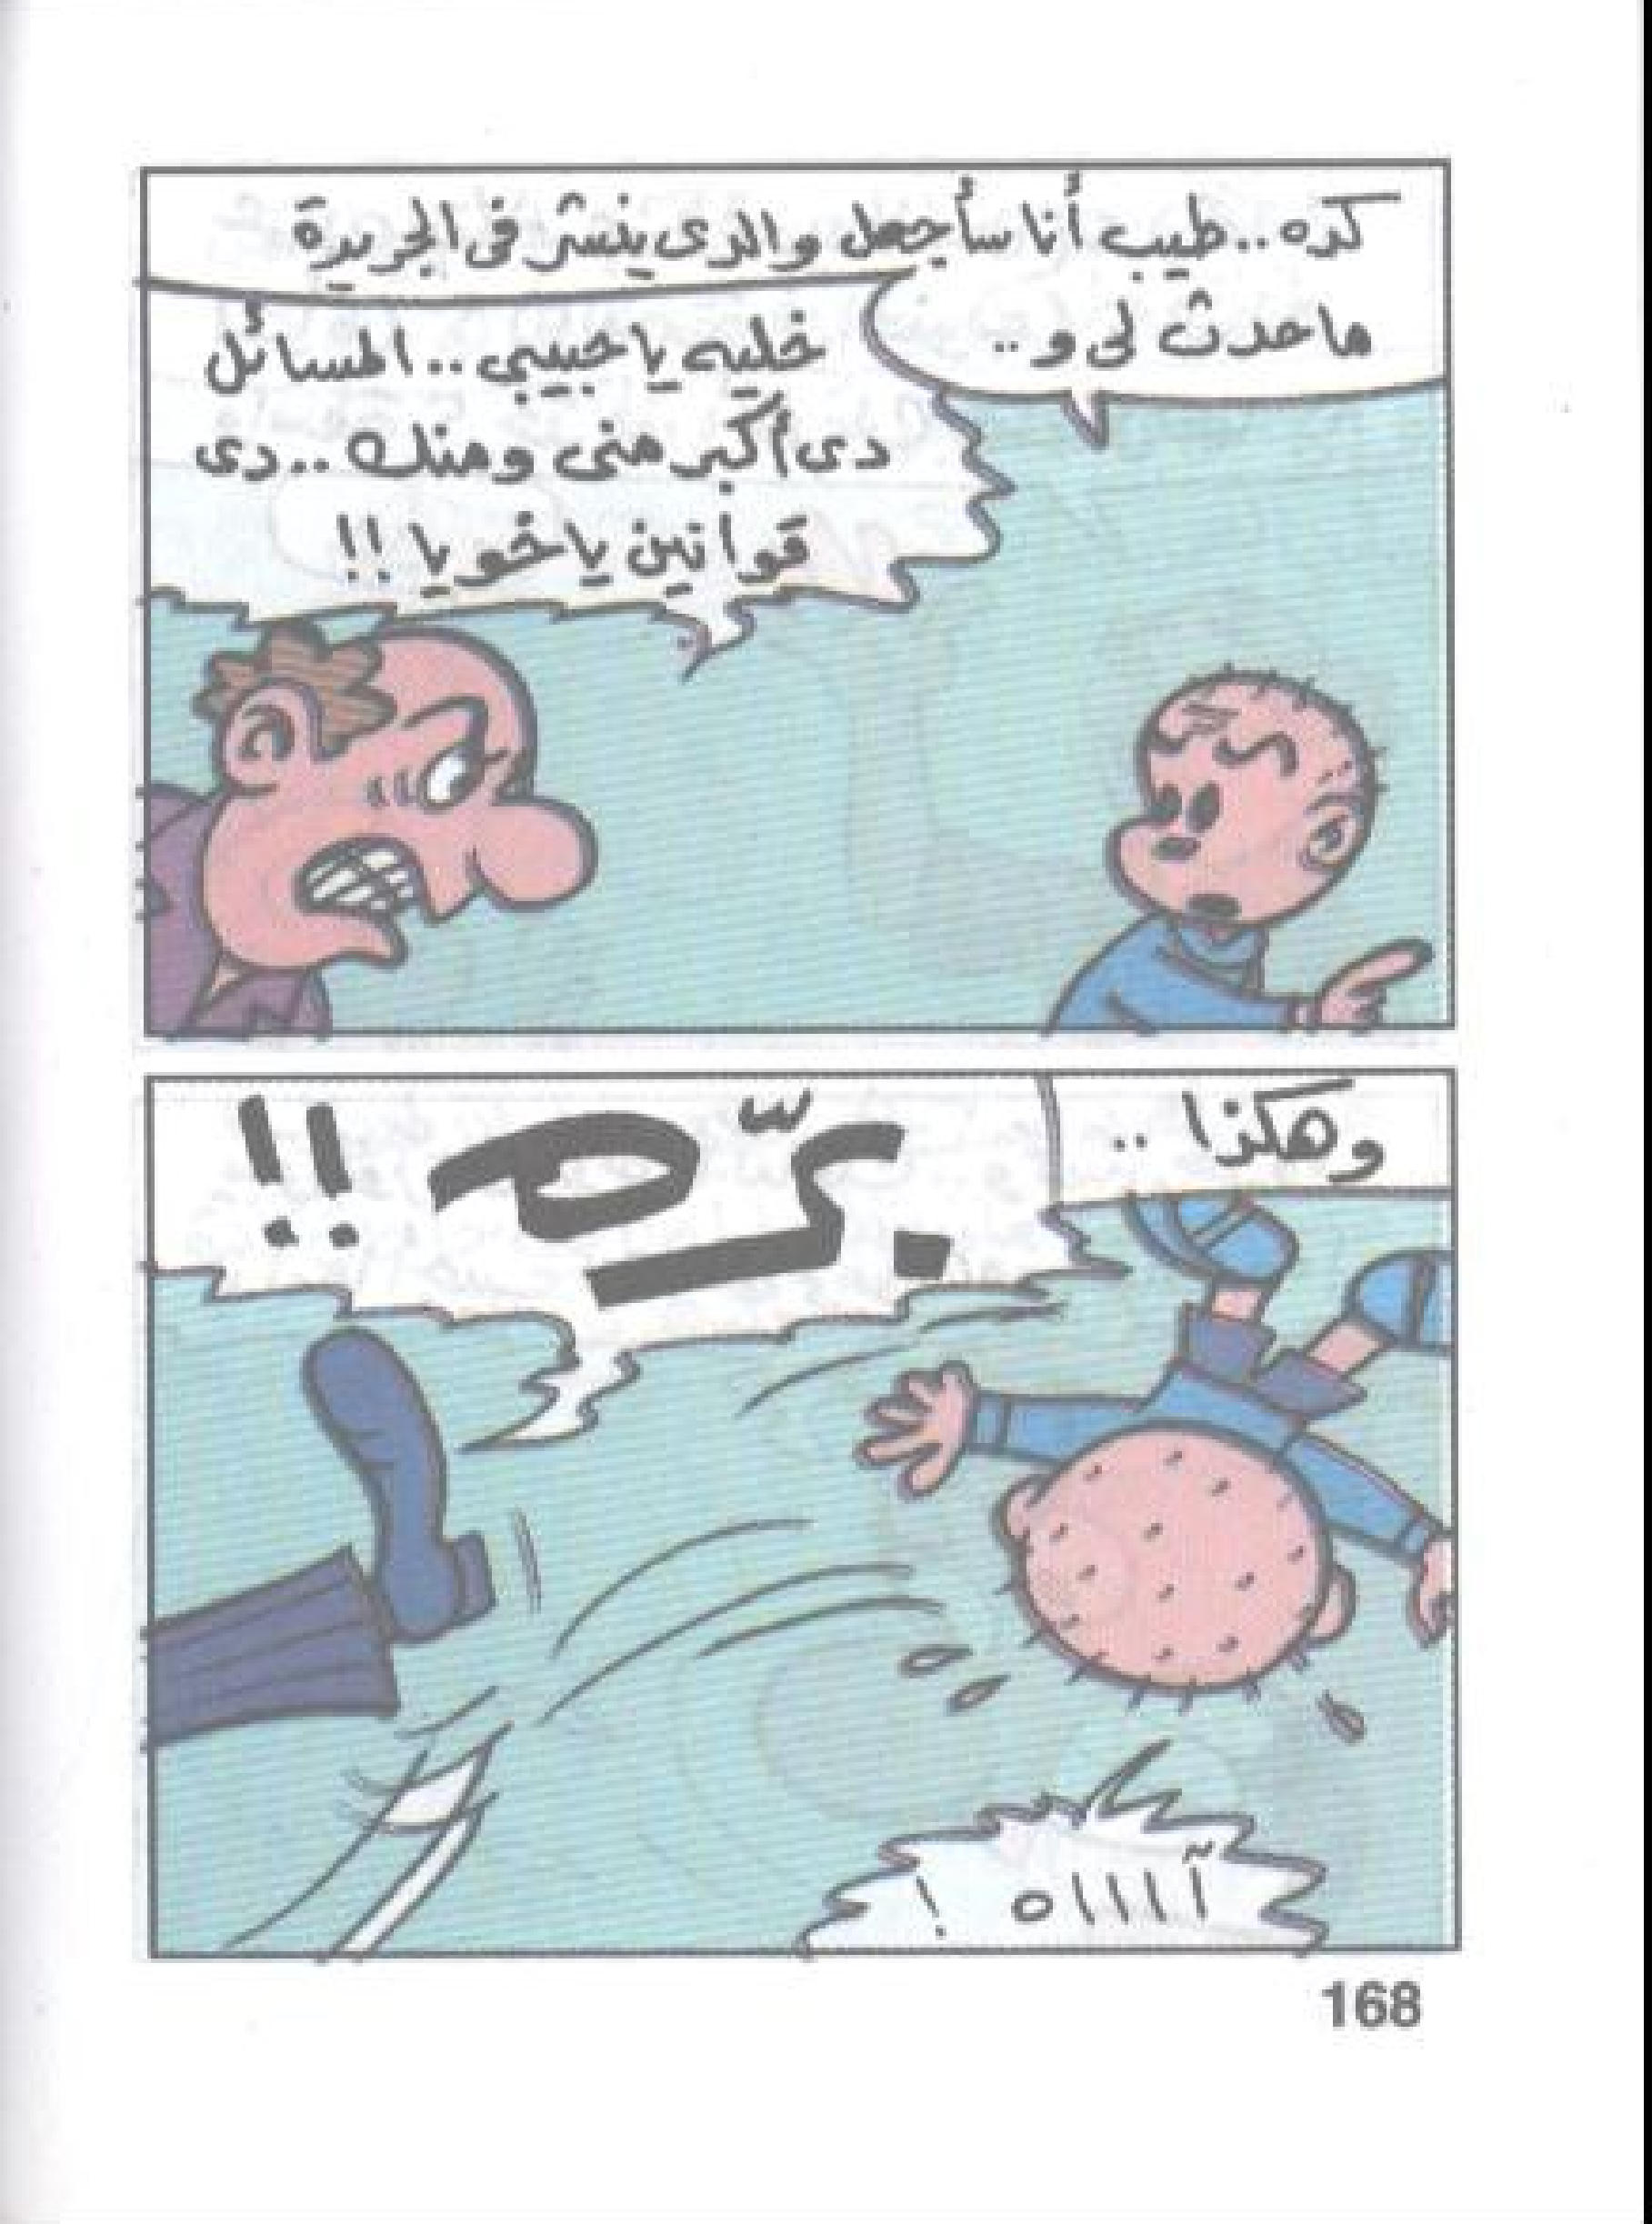 كده.. طيب أنا سأجعل والدى ينشر فى الجريدة
ما حدث لى و ..
خليه يا حبيبى .. المسائل
دى أكبر منى ومنك .. دى
قوانين ياخويا !!
وهكذا ..
برّه !!
آااااه !
168